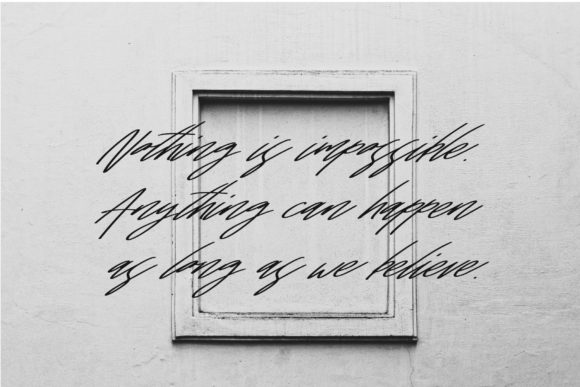 Nothing is impossible.
Anything can happen
as long as we believe.